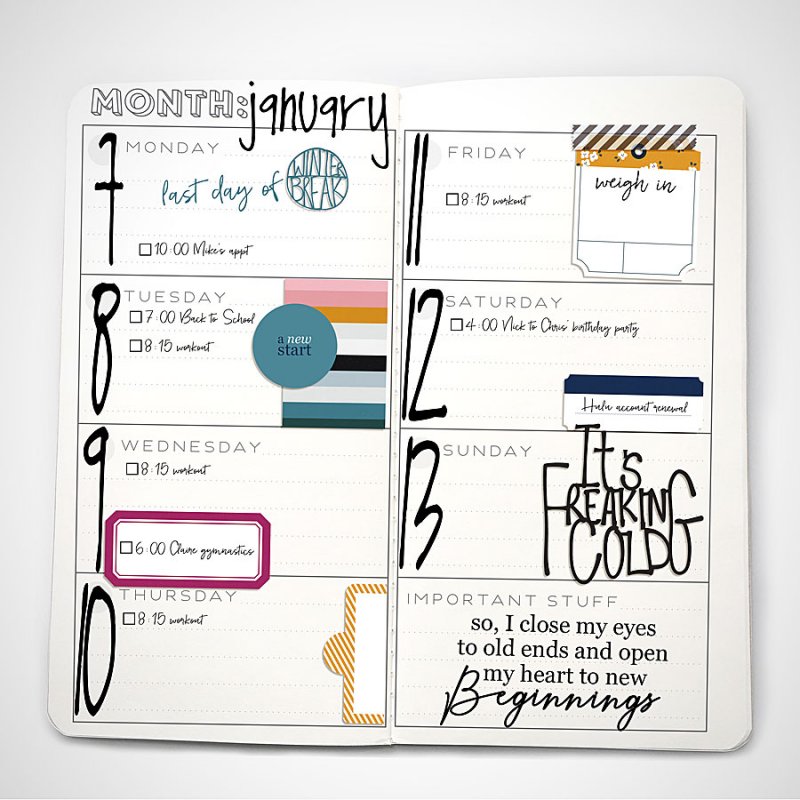 MONTH: january
7 MONDAY
last day of WINTER BREAK
☐ 10:00 Mike's appt
8 TUESDAY
☐ 7:00 Back to School
☐ 8:15 workout
a new
start
9 WEDNESDAY
☐ 8:15 workout
☐ 6:00 Claire gymnastics
10 THURSDAY
☐ 8:15 workout
11 FRIDAY
weigh in
☐ 8:15 workout
12 SATURDAY
☐ 4:00 Nick to Chris' birthday party
Hulu account renewal
13 SUNDAY
It's
FREAKING
COLD
IMPORTANT STUFF
so, I close my eyes
to old ends and open
my heart to new
Beginnings